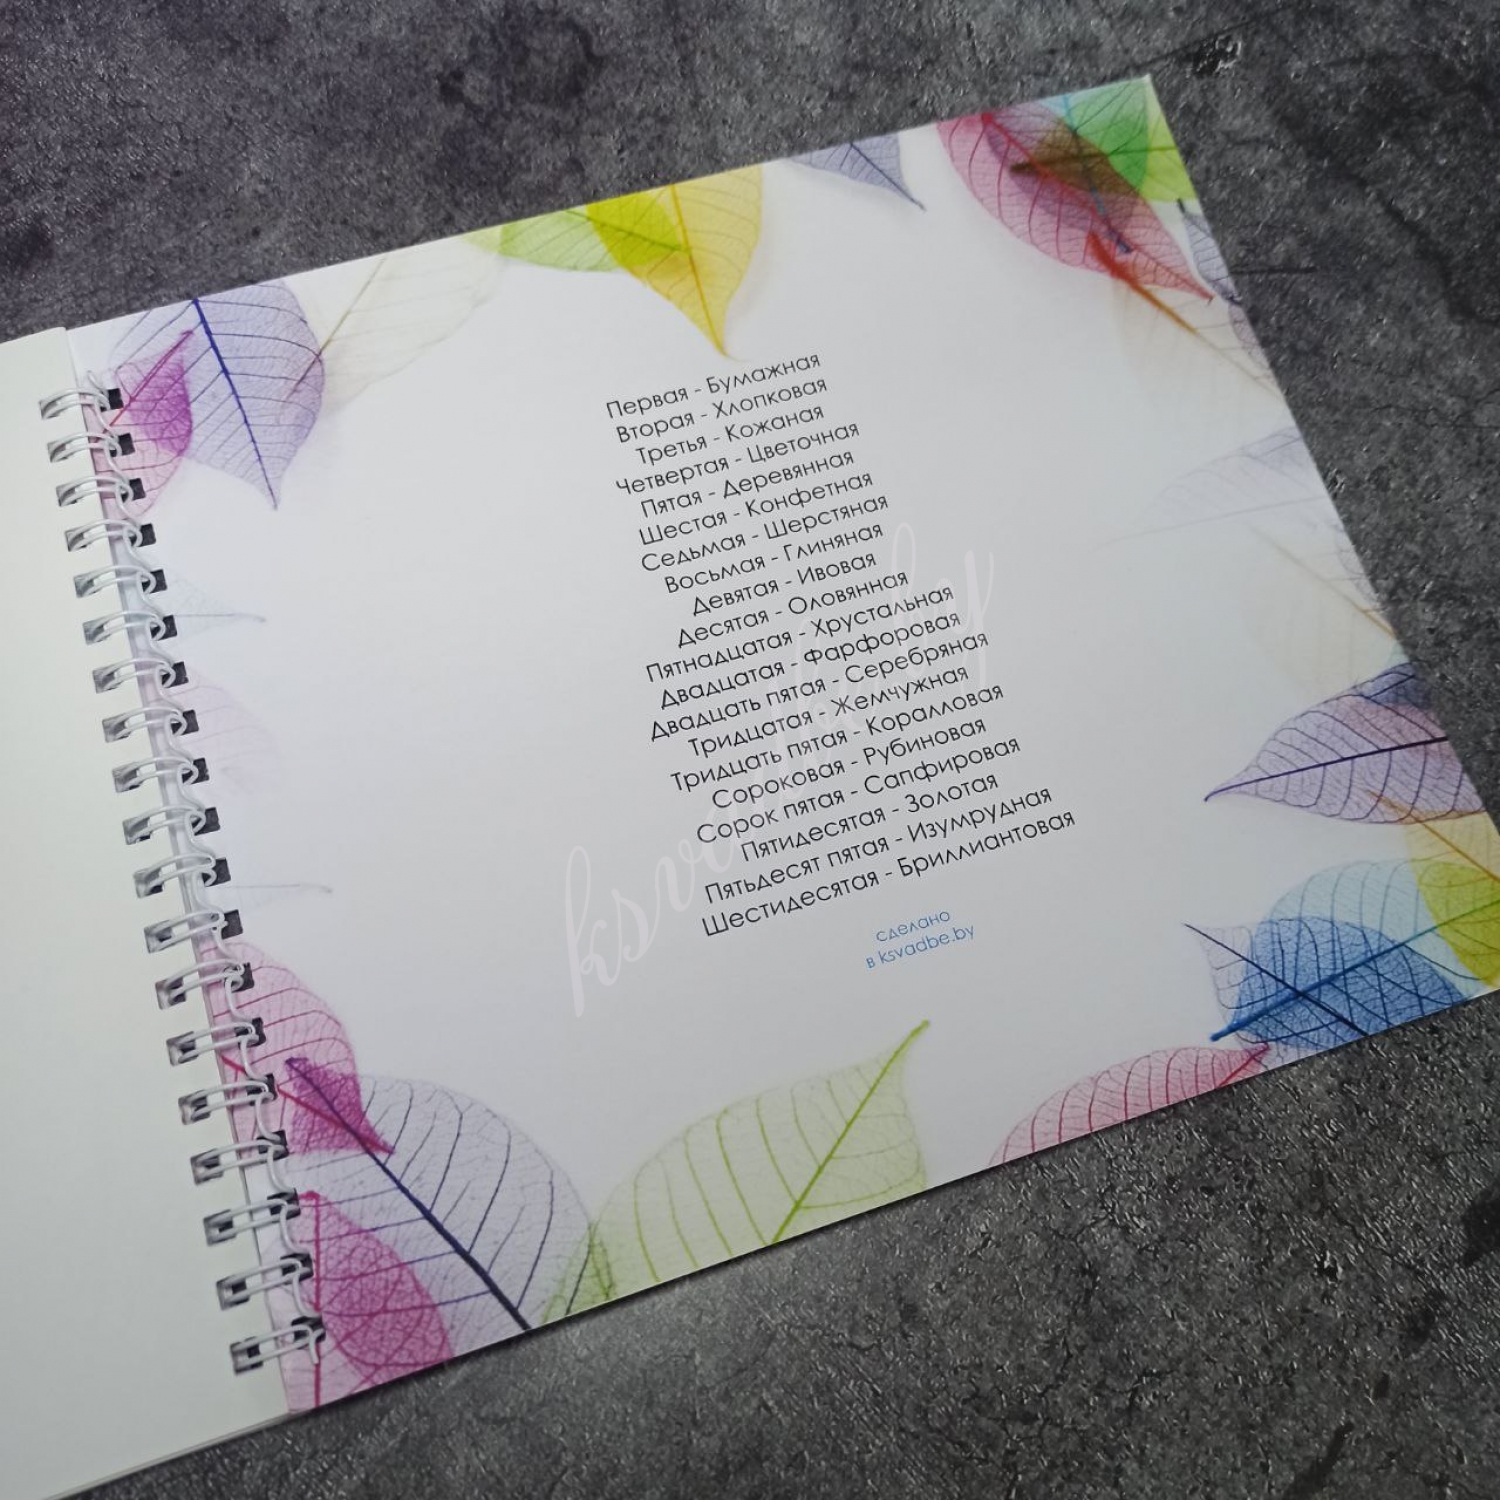 Первая - Бумажная
Вторая - Хлопковая
Третья - Кожаная
Четвертая - Цветочная
Пятая - Деревянная
Шестая - Конфетная
Седьмая - Шерстяная
Восьмая - Глиняная
Девятая - Ивовая
Десятая - Оловянная
Пятнадцатая - Хрустальная
Двадцатая - Фарфоровая
Двадцать пятая - Серебряная
Тридцатая - Жемчужная
Тридцать пятая - Коралловая
Сороковая - Рубиновая
Сорок пятая - Сапфировая
Пятидесятая - Золотая
Пятьдесят пятая - Изумрудная
Шестидесятая - Бриллиантовая
сделано
в ksvadbe.by
ksvadbe.by